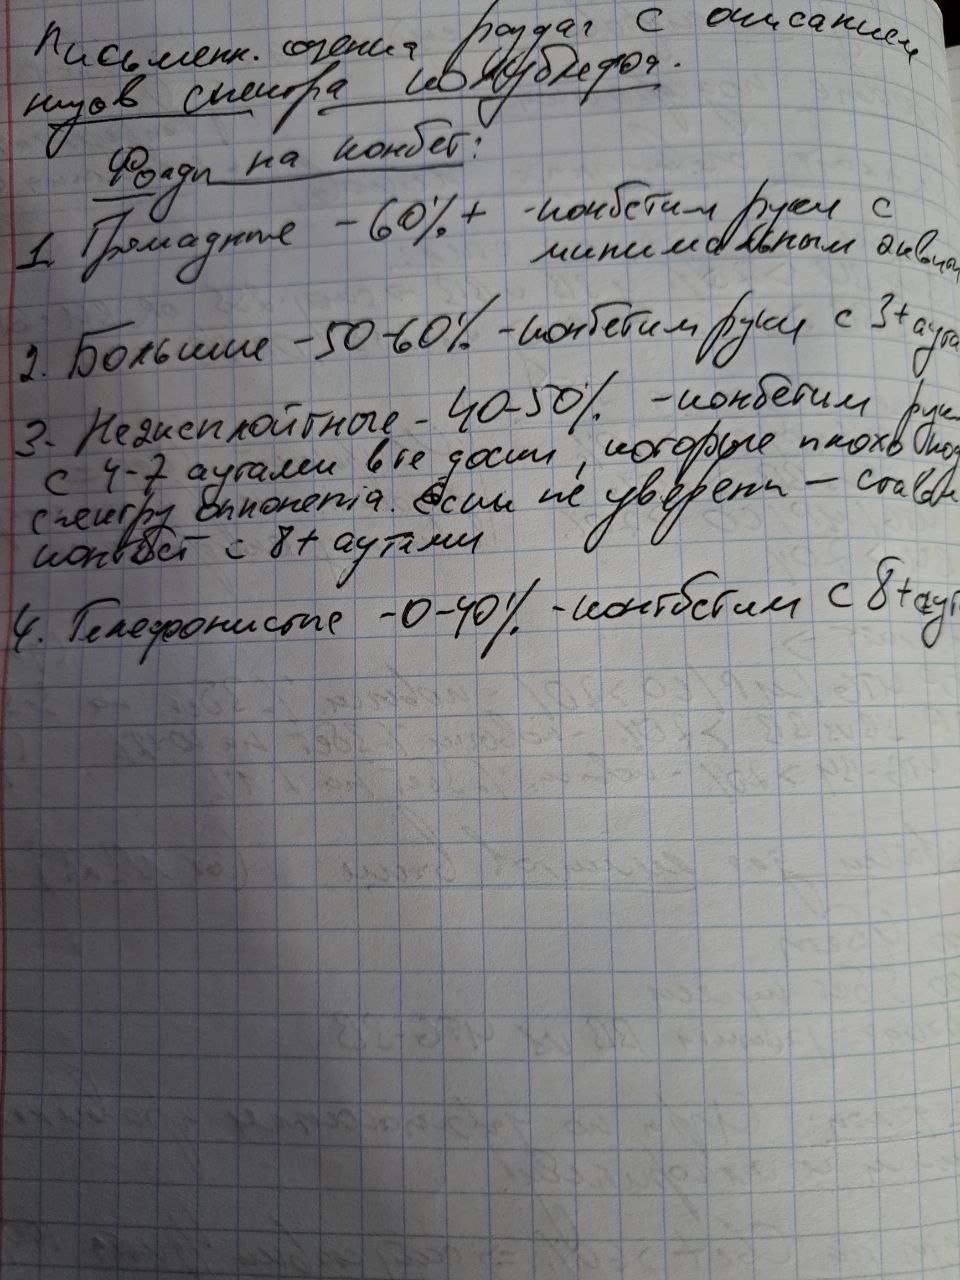 Письменн. оценка раздач с описанием
нутов спектра
Фолды на конбет:
1. Громадные - 60%+ - конбетим руки с
минимальным эквити
2. Большие - 50-60% - конбетим руки с 3+ аута
3. Неэксплойтные - 40-50% - конбетим рук
с 4-7 аутами в те доски, которые плохо
спектру оппонента. Если не уверены - ставим
контбет с 8+ аутами
4. Телефонистые - 0-40% - контбетим с 8+ аут